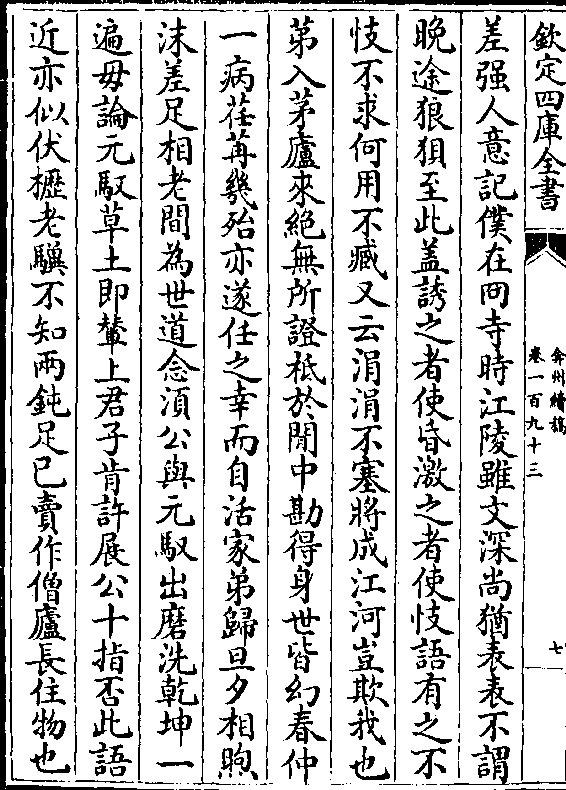 欽定四庫全書
弇州續稿
卷一百九十三
七
差强人意記僕在冏寺時江陵雖文深尚猶表表不謂
晚途狼狽至此盖誘之者使昏激之者使忮語有之不
忮不求何用不臧又云涓涓不塞將成江河豈欺我也
苐入茅廬來絕無所證柢於閒中勘得身世皆幻春仲
一病荏苒幾殆亦遂任之幸而自活家弟歸旦夕相煦
沫差足相老間為世道念湏公與元馭出磨洗乾坤一
遍毋論元馭草土即輦上君子肯許展公十指否此語
近亦似伏櫪老驥不知兩鈍足已賣作僧廬長住物也